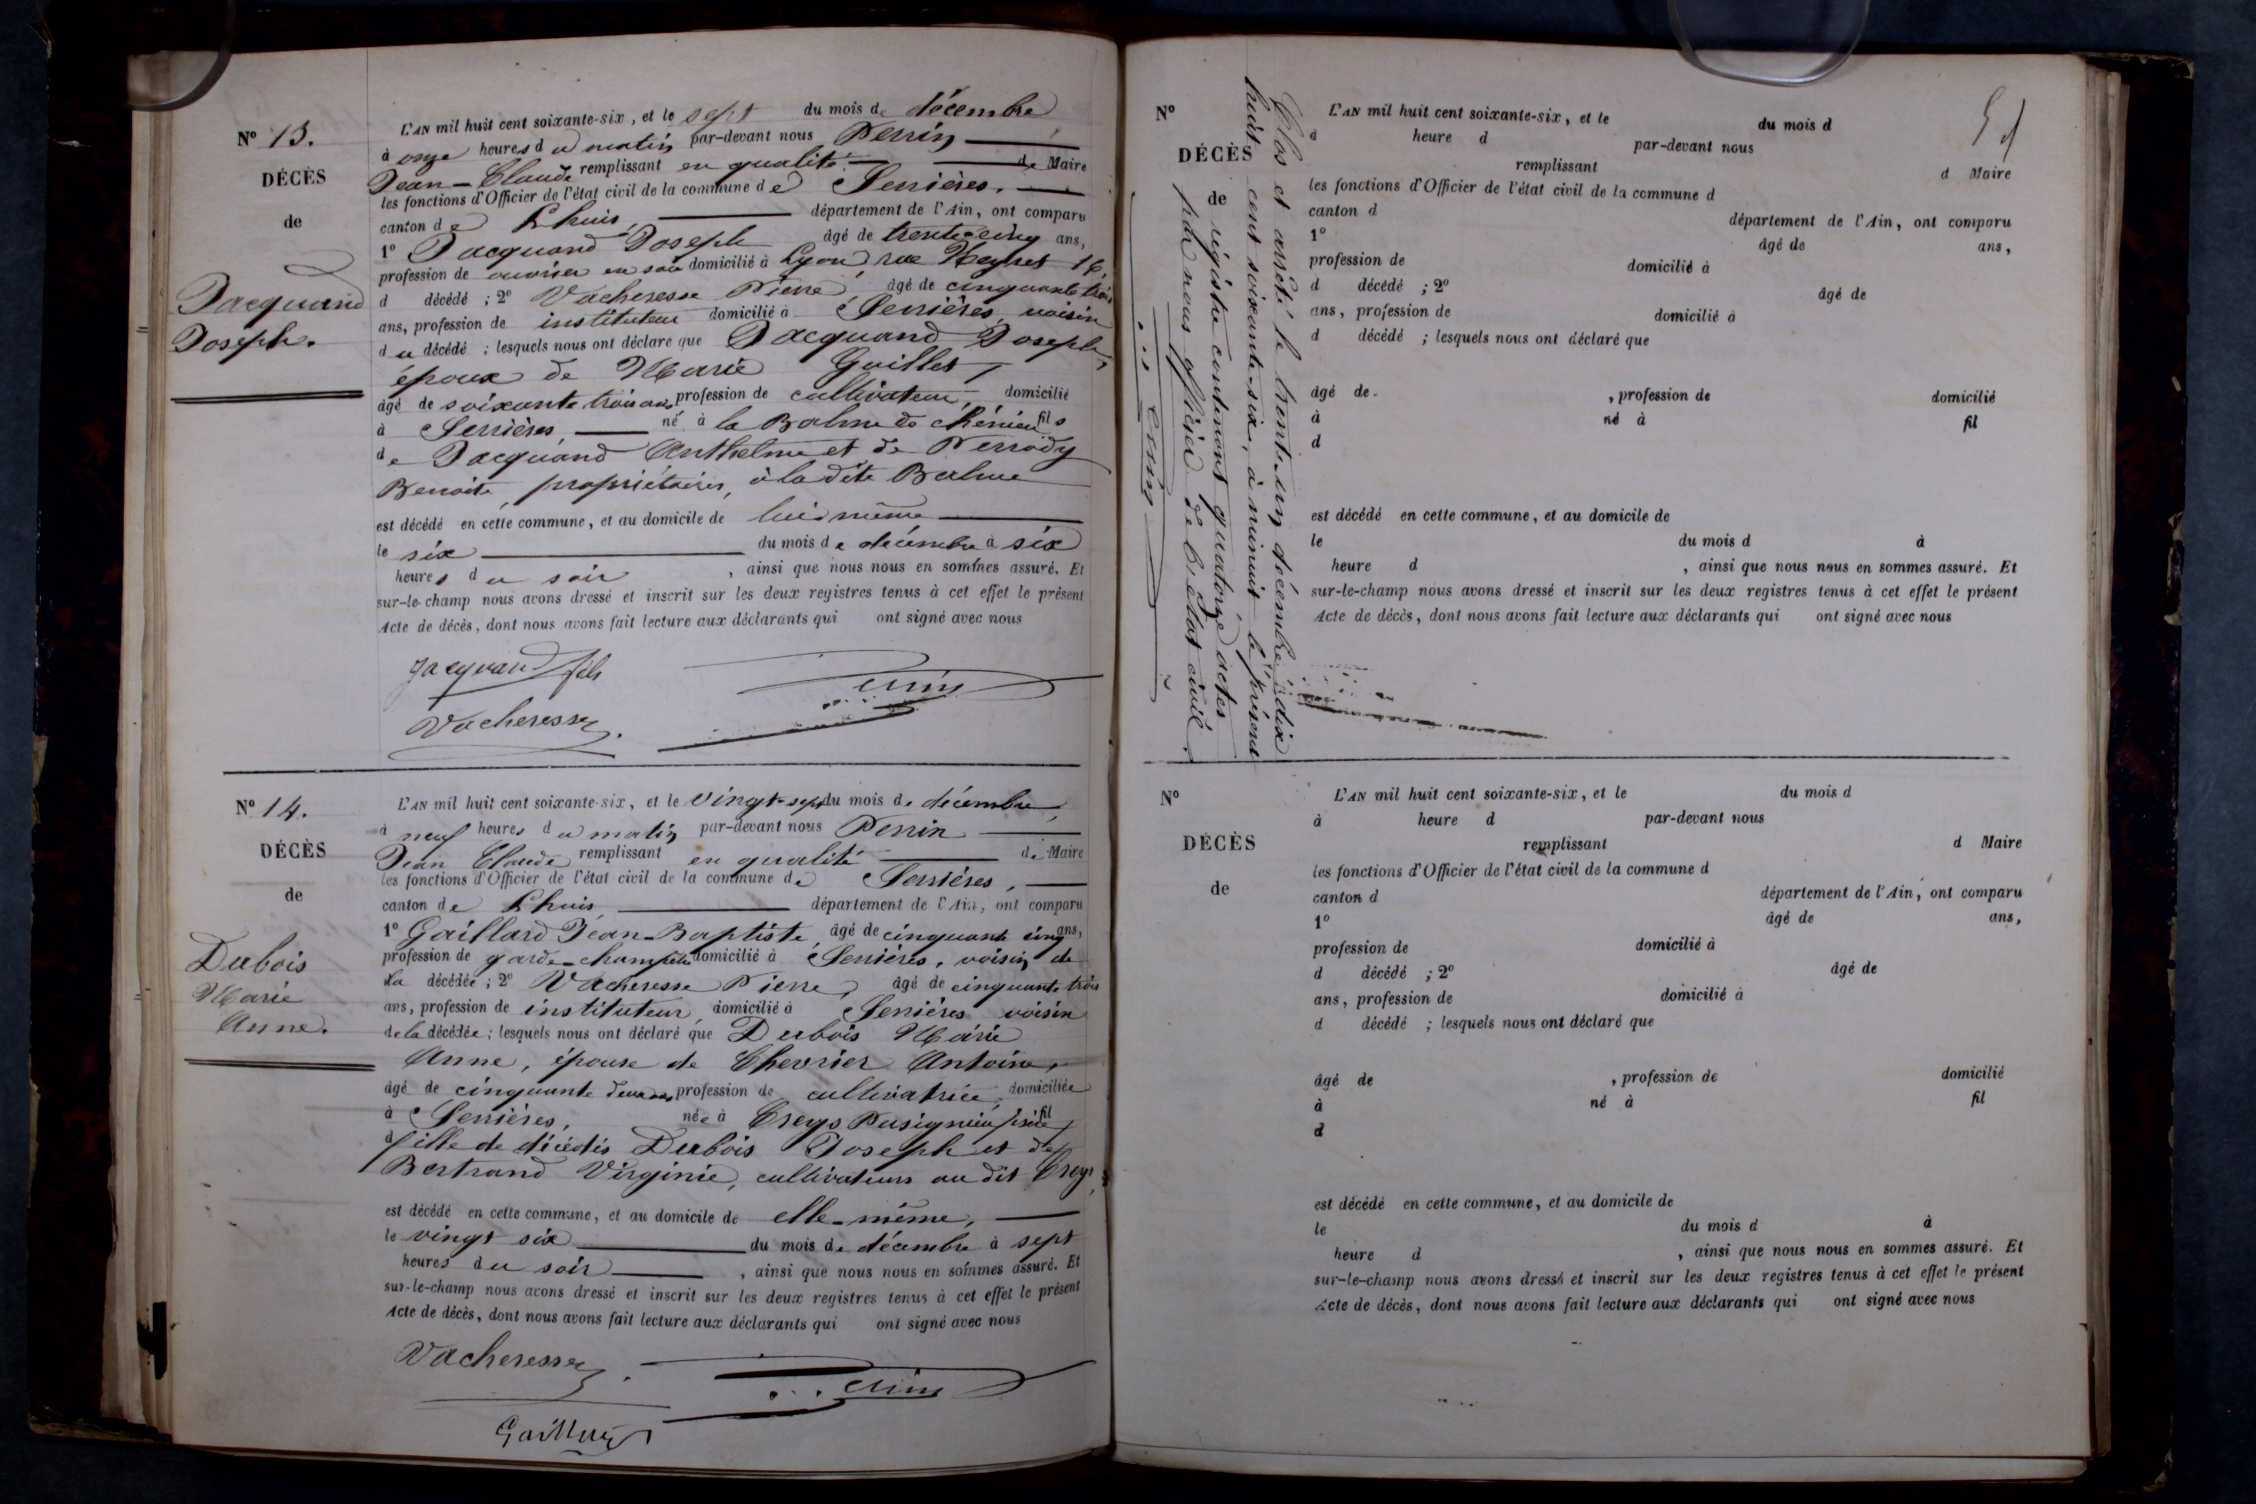 N° 13.
DÉCÈS
de
Jacquand
Joseph.
L'AN mil huit cent soixante-six, et le sept du mois de décembre
à onze heures du matin par-devant nous Perrin
Jean-Claude remplissant en qualité de Maire
les fonctions d'Officier de l'état civil de la commune de Serrières.
canton de Lhuis, département de l'Ain, ont comparu
1° Jacquand Joseph âgé de trente-cinq ans,
profession de ouvrier en soie domicilié à Lyon, rue Neyret 16,
d décédé ; 2° Vacheresse Pierre, âgé de cinquante trois
ans, profession de instituteur domicilié à Serrières, voisin
du décédé ; lesquels nous ont déclaré que Jacquand Joseph,
époux de Marie Guillet,
âgé de soixante trois ans, profession de cultivateur, domicilié
à Serrières, né à la Balme de fils
de Jacquand Anthelme et de Perrody
Benoite, propriétaires, à la dite Balme
est décédé en cette commune, et au domicile de lui-même
le six du mois de décembre à six
heures du soir , ainsi que nous nous en sommes assuré. Et
sur-le-champ nous avons dressé et inscrit sur les deux registres tenus à cet effet le présent
Acte de décès, dont nous avons fait lecture aux déclarants qui ont signé avec nous
Jacquand fils
Perrin
Vacheresse
N° 14.
DÉCÈS
de
Dubois
Marie
Anne.
L'AN mil huit cent soixante-six, et le vingt-sept du mois de décembre,
à neuf heures du matin par-devant nous Perrin
Jean Claude remplissant en qualité de Maire
les fonctions d'Officier de l'état civil de la commune de Serrières,
canton de Lhuis, département de l'Ain, ont comparu
1° Gaillard Jean-Baptiste, âgé de cinquante cinq ans,
profession de garde-champêtre domicilié à Serrières, voisin de
la décédée ; 2° Vacheresse Pierre, âgé de cinquante trois
ans, profession de instituteur, domicilié à Serrières voisin
de la décédée ; lesquels nous ont déclaré que Dubois Marie
Anne, épouse de Chevrier Antoine,
âgé de cinquante deux ans, profession de cultivatrice, domiciliée
à Serrières, née à Creys Pusignieu (Isère) fil
d fille de décédés Dubois Joseph et de
Bertrand Virginie, cultivateurs au dit Creys,
est décédé en cette commune, et au domicile de elle-même,
le vingt six du mois de décembre à sept
heures du soir , ainsi que nous nous en sommes assuré. Et
sur-le-champ nous avons dressé et inscrit sur les deux registres tenus à cet effet le présent
Acte de décès, dont nous avons fait lecture aux déclarants qui ont signé avec nous
Vacheresse
Perrin
Gaillard
Clos et arrêté le trente-un décembre, dix
huit cent soixante-six, à minuit le présent
registre contenant quatorze actes
par nous officier de l'état civil.
Perrin
N°
DÉCÈS
de
L'AN mil huit cent soixante-six, et le du mois d
à heure d par-devant nous
remplissant d Maire
les fonctions d'Officier de l'état civil de la commune d
canton d département de l'Ain, ont comparu
1° âgé de ans,
profession de domicilié à
d décédé ; 2° âgé de
ans, profession de domicilié à
d décédé ; lesquels nous ont déclaré que
âgé de , profession de domicilié
à né à fil
d
est décédé en cette commune, et au domicile de
le du mois d à
heure d , ainsi que nous nous en sommes assuré. Et
sur-le-champ nous avons dressé et inscrit sur les deux registres tenus à cet effet le présent
Acte de décès, dont nous avons fait lecture aux déclarants qui ont signé avec nous
N°
DÉCÈS
de
L'AN mil huit cent soixante-six, et le du mois d
à heure d par-devant nous
remplissant d Maire
les fonctions d'Officier de l'état civil de la commune d
canton d département de l'Ain, ont comparu
1° âgé de ans,
profession de domicilié à
d décédé ; 2° âgé de
ans, profession de domicilié à
d décédé ; lesquels nous ont déclaré que
âgé de , profession de domicilié
à né à fil
d
est décédé en cette commune, et au domicile de
le du mois d à
heure d , ainsi que nous nous en sommes assuré. Et
sur-le-champ nous avons dressé et inscrit sur les deux registres tenus à cet effet le présent
Acte de décès, dont nous avons fait lecture aux déclarants qui ont signé avec nous